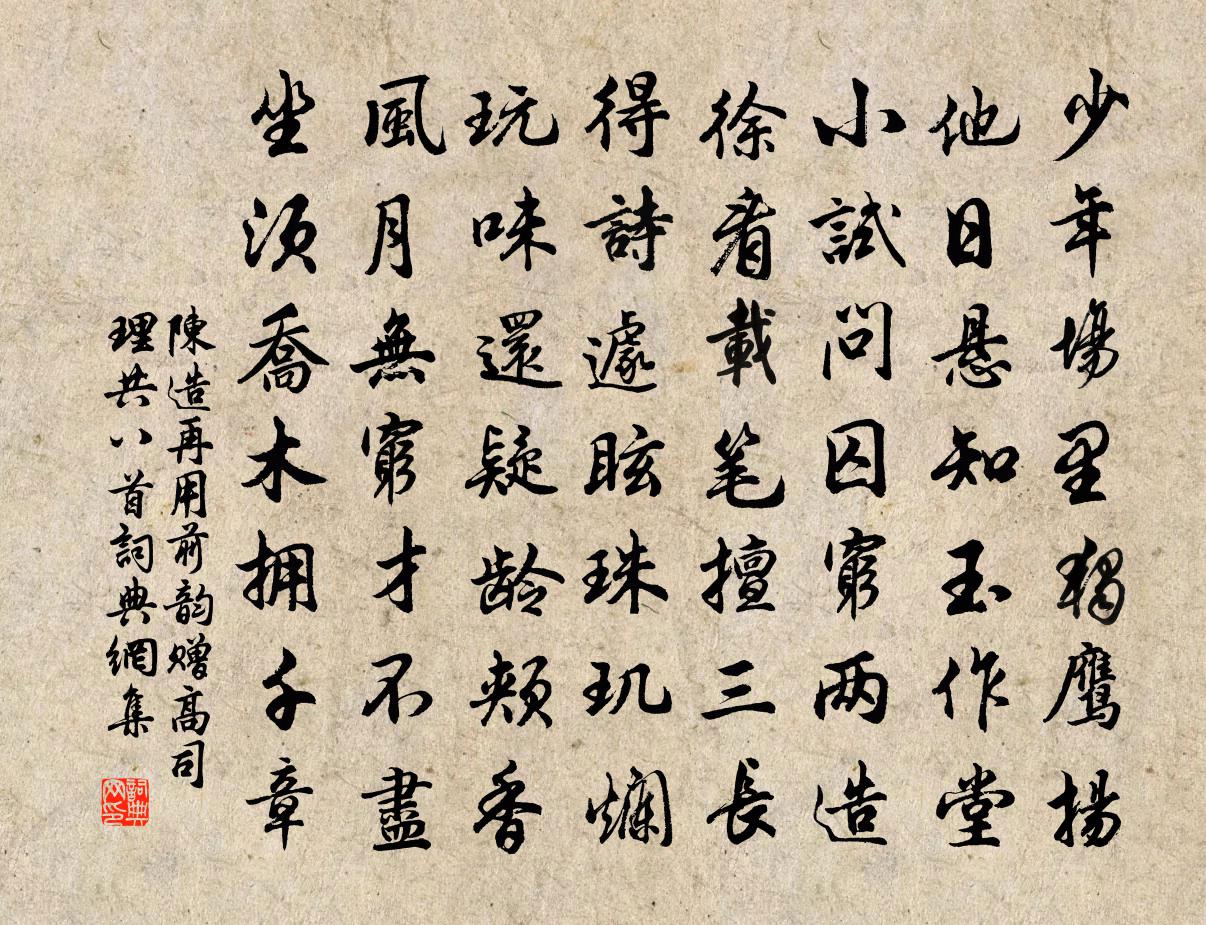 少年場里獨鷹揚
他日悬知玉作堂
小試問囚窮两造
徐看載笔擅三長
得詩遽眩珠玑爛
玩味還疑龄頰香
風月無窮才不盡
坐須喬木拥千章
陳造再用前韵赠高司
理共八首詞典網集
詞典
网印